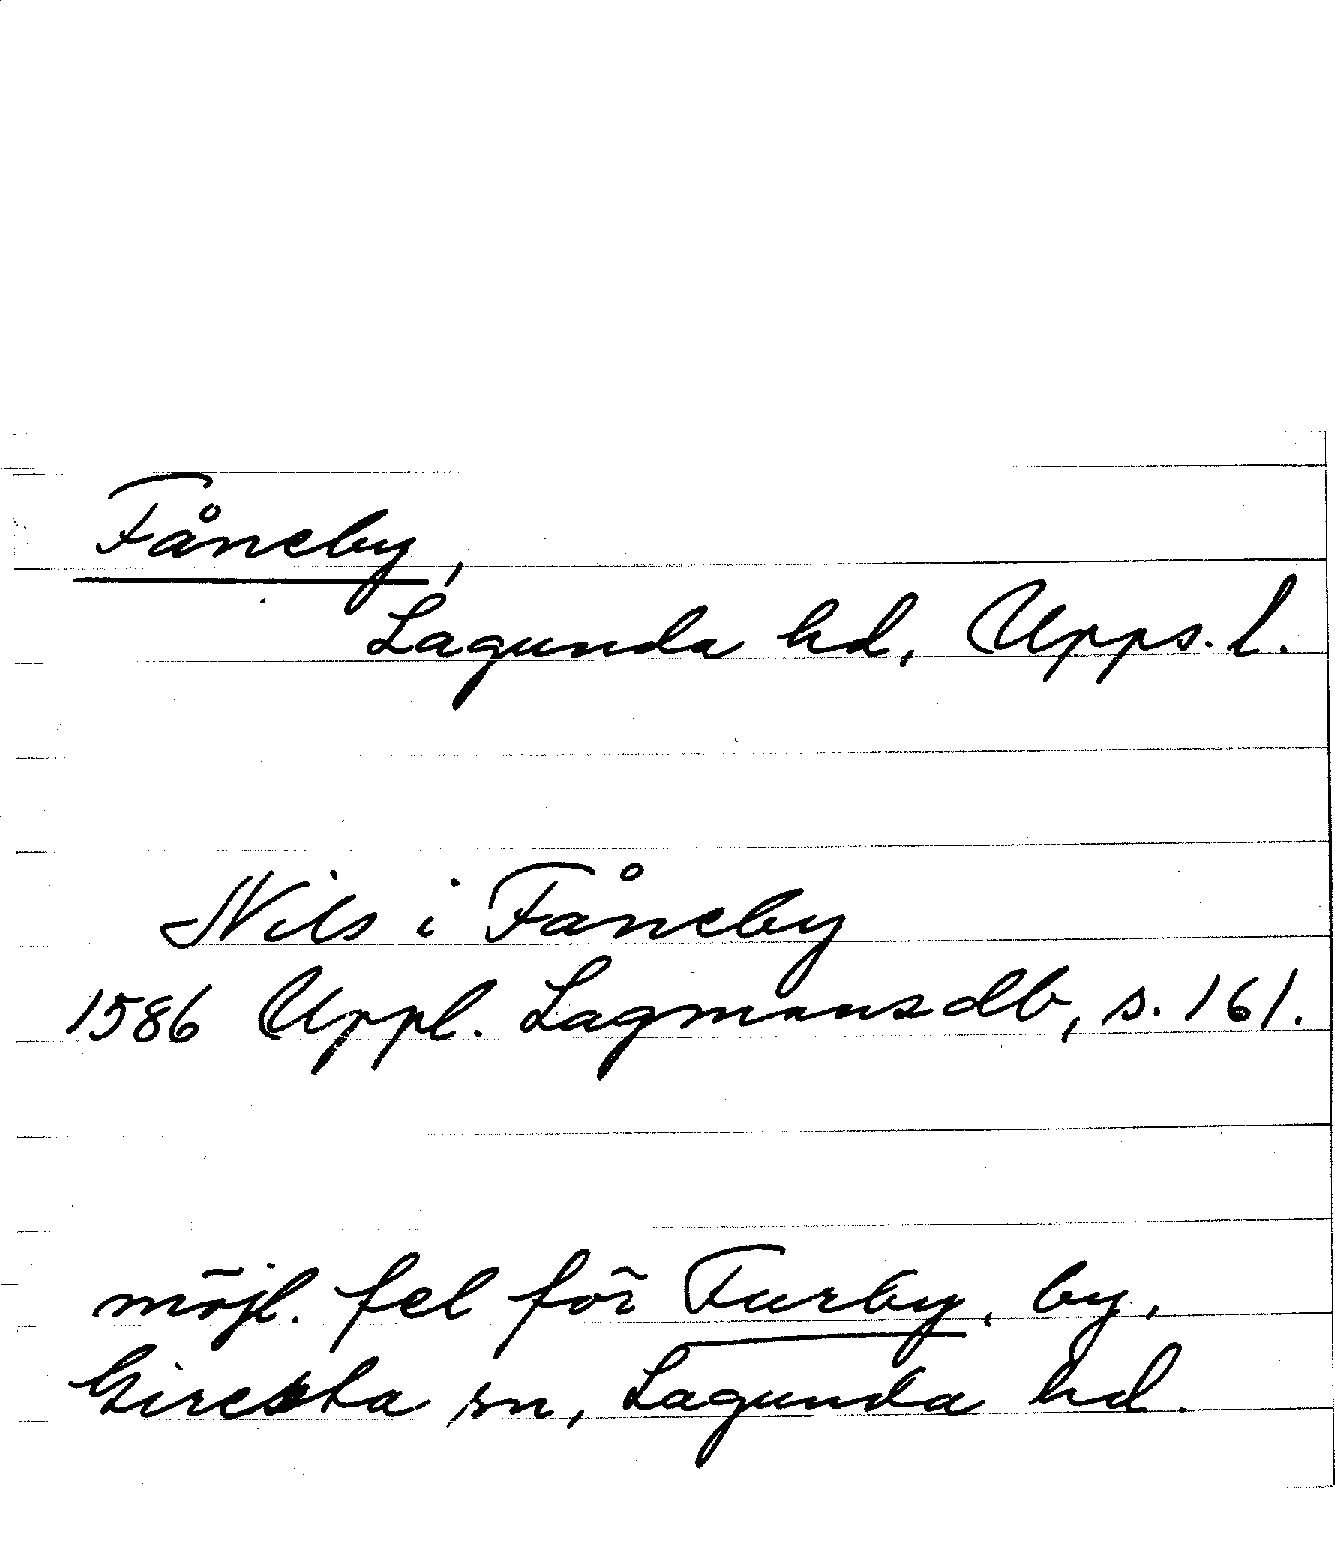 Fåneby,
Lagunda hd, Upps. l.
Nils i Fåneby
1586 Uppl. Lagmansdb, s. 161.
möjl. fel för Furby, by,
Giresta sn, Lagunda hd.